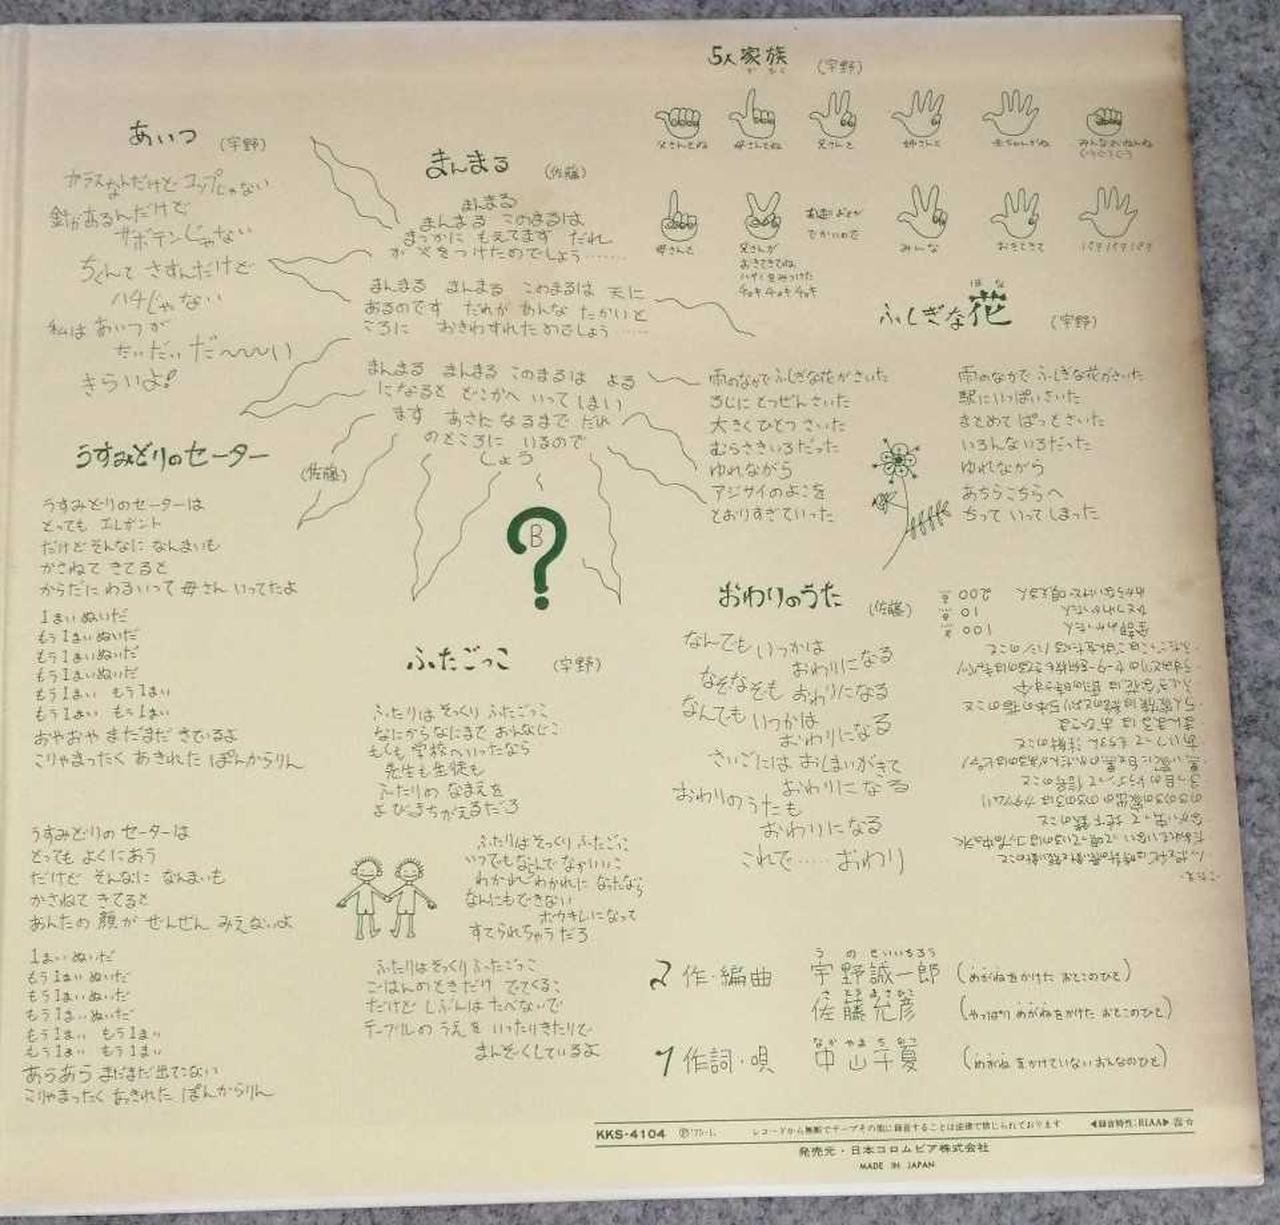 あいつ (宇野)
ガラスなんだけど コップじゃない
針があるんだけど
サボテンじゃない
ちくんて さすんだけど
ハチじゃない
私は あいつが
だいだい だ〜〜〜い
きらいよ!
うすみどりのセーター (佐藤)
うすみどりのセーターは
とっても エレガント
だけど そんなに なんまいも
かさねて きてると
からだに わるいって 母さん いってたよ
1まい ぬいだ
もう1まい ぬいだ
もう1まい ぬいだ
もう1まい ぬいだ
もう1まい もう1まい
もう1まい もう1まい
おやおや まだまだ きているよ
こりゃまったく あきれた ぽんからりん
うすみどりの セーターは
とっても よくにあう
だけど そんなに なんまいも
かさねて きてると
あんたの 顔が ぜんぜん みえないよ
1まい ぬいだ
もう1まい ぬいだ
もう1まい ぬいだ
もう1まい ぬいだ
もう1まい もう1まい
もう1まい もう1まい
あらあら まだまだ 出てこない
こりゃまったく あきれた ぽんからりん
まんまる (佐藤)
まんまる
まんまる このまるは
まっかに もえてます だれ
が 火をつけたのでしょう……
まんまる まんまる このまるは 天に
あるのです だれが あんな たかいと
ころに おきわすれたのでしょう……
まんまる まんまる このまるは よる
になると どこかへ いって しまい
ます あさに なるまで だれ
のところに いるので
しょう
B
?
ふたごっこ (宇野)
ふたりは そっくり ふたごっこ
なにからなにまで おんなじこ
もしも 学校へ いったなら
先生も 生徒も
ふたりの なまえを
よびまちがえるだろ
ふたりは そっくり ふたごっこ
いつでも ならんで なかいいこ
わかれわかれに なったなら
なんにもできない
ホウキレになって
すてられちゃうだろ
ふたりは そっくり ふたごっこ
ごはんのときだけ でてくるこ
だけど じぶんは たべないで
テーブルの うえを いったりきたりで
まんぞくしているよ
5人家族 (宇野)
かぞく
父さんでね
母さんでね
兄さんと
姉さんと
赤ちゃんがね
みんなおねんね
ぐうぐうぐう
母さんと
兄さんが
おきてきてね
ハサミをみつけた
チョキ チョキ チョキ
でかいので
みんな
おきてきて
パアパアパアパア
ふしぎな花 (宇野)
はな
雨のなかで ふしぎな花がさいた
ろじに とつぜんさいた
大きく ひとつ さいた
むらさきいろだった
ゆれながら
アジサイの よこを
とおりすぎていった
雨のなかで ふしぎな花がさいた
駅に いっぱいさいた
まとめて ぱっと さいた
いろんな いろだった
ゆれながら
あちらこちらへ
ちって いって しまった
おわりのうた (佐藤)
なんでも いつかは
おわりになる
なぞなぞも おわりになる
なんでも いつかは
おわりになる
さいごには おしまいがきて
おわりになる
おわりのうたも
おわりになる
これで…… おわり
わからないけど 唄える人 200点
ひとつわかった人 10点
全部わかった人 100点
ふしぎな花は 雨の時のカサ
5人家族は 絵のとおり 5本の指のこと
まんまるは おひさま
あいつって もちろん 注射のこと
こたえ
2 作・編曲 宇野誠一郎 (めがねをかけた おとこのひと)
うのせいいちろう
さとうまさひこ
佐藤允彦 (やっぱり めがねをかけた おとこのひと)
なかやまちなつ
1 作詞・唄 中山千夏 (めがねをかけていないおんなのひと)
KKS-4104 Ⓟ'75-1. レコードから無断でテープその他に録音することは法律で禁じられております ◀録音特性:RIAA▶
発売元・日本コロムビア株式会社
MADE IN JAPAN